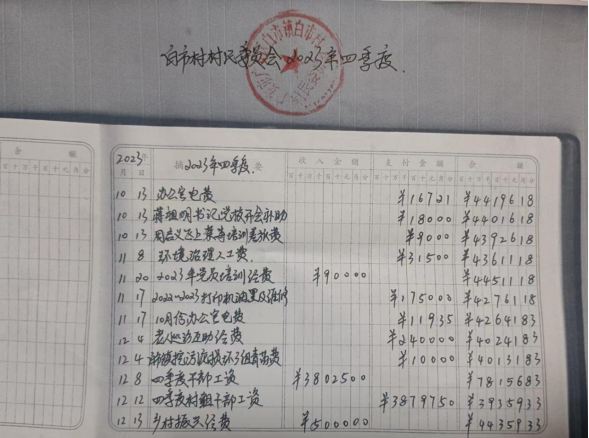 白市村村民委员会2023年四季度.
余 额
百十万千百十元角分
2023年 摘2023年四季度.要 收入金额 支付金额 余额
月 日 百十万千百十元角分 百十万千百十元角分 百十万千百十元角分
10 13 办公室电费 ¥16721 ¥4419618
10 13 蒋祖明书记党校开会补助 ¥18000 ¥4401618
10 13 培训差旅费 ¥9000 ¥4392618
11 8 环境治理人工费 ¥31500 ¥4361118
11 20 2023年党员培训经费 ¥90000 ¥4451118
11 17 2022-2023打印机及维修 ¥175000 ¥4276118
11 17 10月份办公室电费 ¥11935 ¥4264183
12 4 老人互助经费 ¥240000 ¥4024183
12 4 3组青苗费 ¥10000 ¥4013183
12 8 四季度干部工资 ¥3802500 ¥7815683
12 12 四季度村组干部工资 ¥3879750 ¥3935933
12 13 乡村振兴经费 ¥500000 ¥4435933